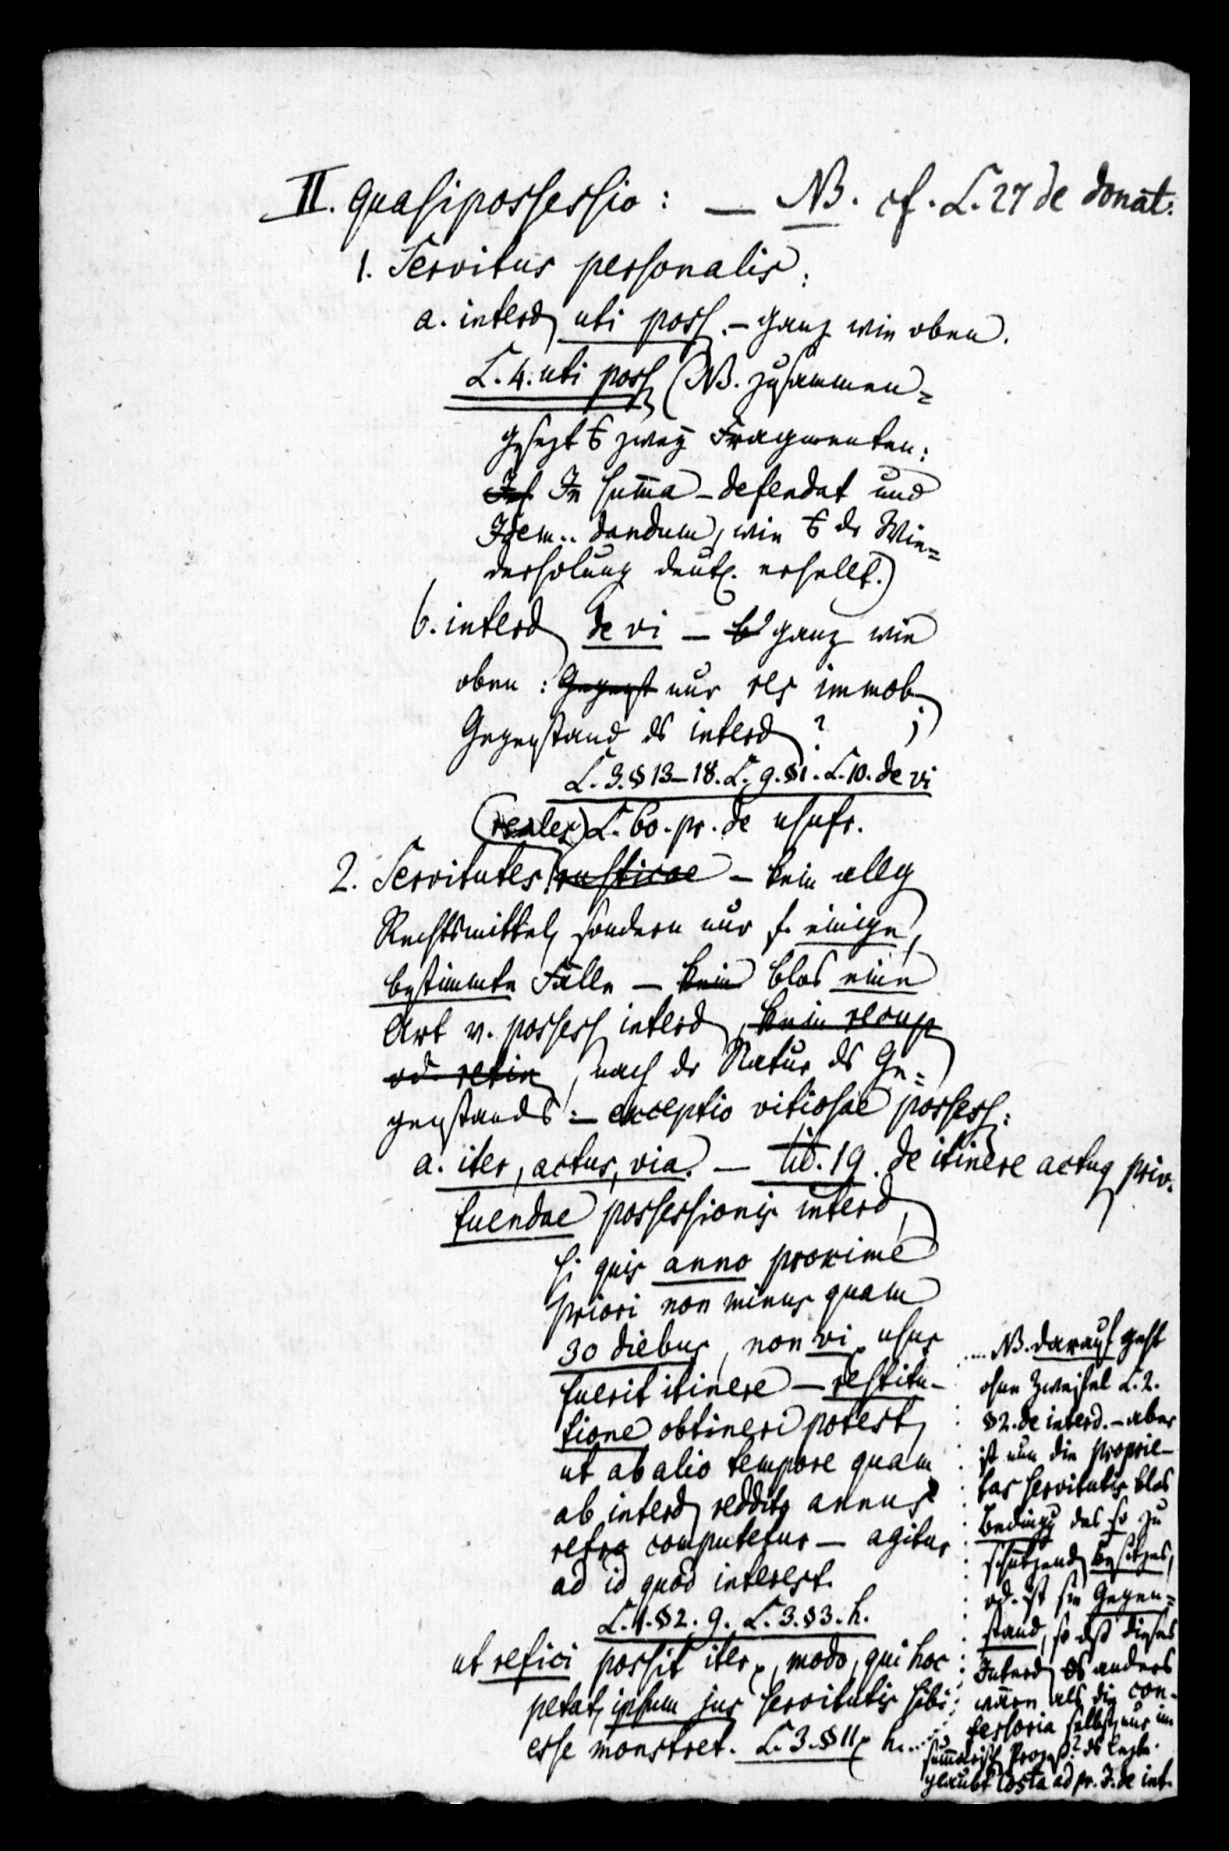 II. quasipossessio: — NB. cf. L. 27 de donat.
1. Servitus personalis:
a. interd uti poss. – ganz wie oben.
L. 4. uti poss (NB. zusammen=
gesezt zwey Fragmenten:
In summa – defendat und
Idem .. dandum, wie der Wie=
derholung deutl. erhellt.)
b. interd de vi – ganz wie
oben: Gegenst nur res immob
Gegenstand ds interd?
L. 3. § 13–18. L. 9. § 1. L. 10. de vi
L. 60. pr. de usufr.
(reales)
2. Servitutes rusticae – kein allg
Rechtsmittel, sondern nur f. einige,
bestimmte Fälle – kein blos eine
Art v. possess interd, kein recup
od. retin, nach der Natur ds Ge=
genstands: – exceptio vitiosae possess:
a. iter, actus, via. – tit. 19. de itinere actuq priv.
tuendae possessionis interd,
si quis anno proxime
priori non minus quam
30 diebus, non vi, usus
fuerit itinere – restitu-
tione obtineri potest,
ut ab alio tempore quam
ab interd reddito annus
retro computetur – agitur
ad id quod interest.
L. 1. § 2. 9. L. 3. § 3. h.
ut refici possit iter, modo, qui hoc
petat, ipsum jus servitutis sibi
esse monstret. L. 3. § 11 h...
.... NB. darauf geht
ohne Zweifel L. 2.
§ 2. de interd. – aber
ist nun die proprie-
tas servitutis blos
Bedingg des so zu
schützend Besitzes,
od. ist sie Gegen=
stand, so daß dieses
Interd ds anders
wären als die con-
fessoria selbst, nur im
summarisch Prozeß? ds lezte
glaubt Costa ad pr. J. de int.